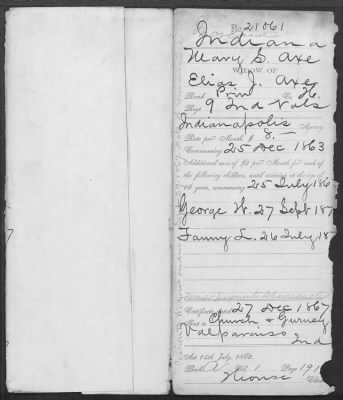 No 21061
Indiana
Mary S. Axe
WIDOW OF
Elias J. Axe
Rank Priv Co. H.
Regt 9 Ind Vols
Indianapolis Agency.
Rate per Month, $ 8.-
Commencing 25 Dec 1863
Additional sum of $2 per Month for each of
the following children, until arriving at the age of
16 years, commencing 25 July 186
George W. 27 Sept 187
Fanny L. 26 July 18
Certificate dated 27 Dec 1867
Sent to Church & Gurney
Valparaiso
Ind
Act 14th July, 1862.
Book A Vol. 1 Page 191
Clerk